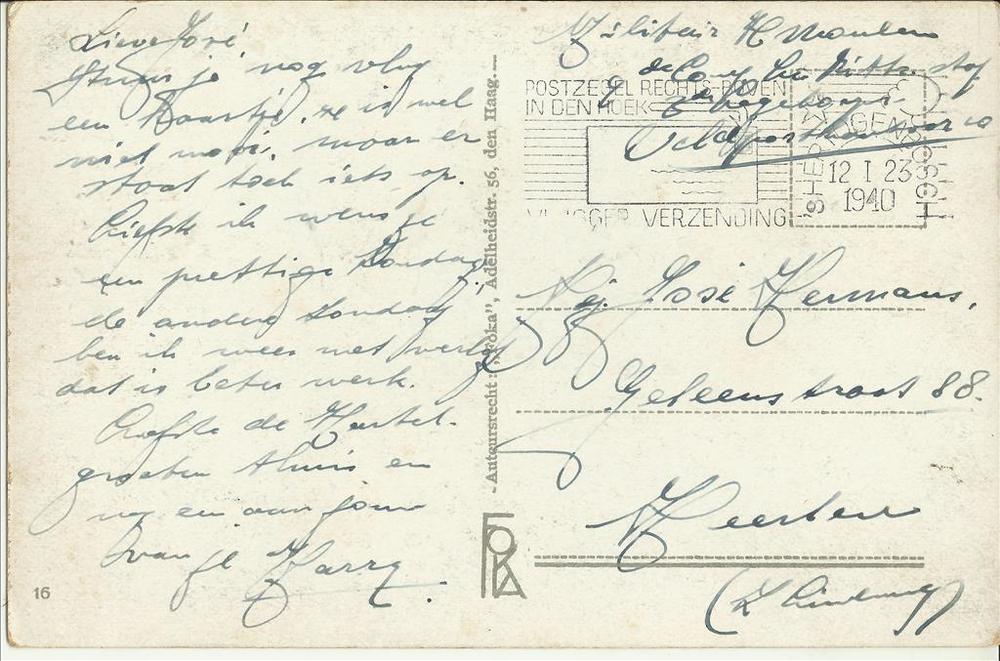 Lieve José,
Stuur je nog vlug
een kaartje, ze is wel
niet mooi, maar er
staat toch iets op.
Liefste ik wens je
een prettige Zondag,
de andere Zondag
ben ik weer met verlof
dat is beter werk.
Liefste de Hartel.
groeten thuis en
nog een aan jou
van je Harry.
16
- Auteursrecht: „Foka”, Adelheidstr. 56, den Haag.—
FOKA
Militair H
staf
POSTZEGEL RECHTS-BOVEN
IN DEN HOEK
VLUGGER VERZENDING
'S HERTOGENBOSCH
12 I 23
1940
Mej. José Hermans,
Geleenstraat 88.
Heerlen
(Z Limburg)